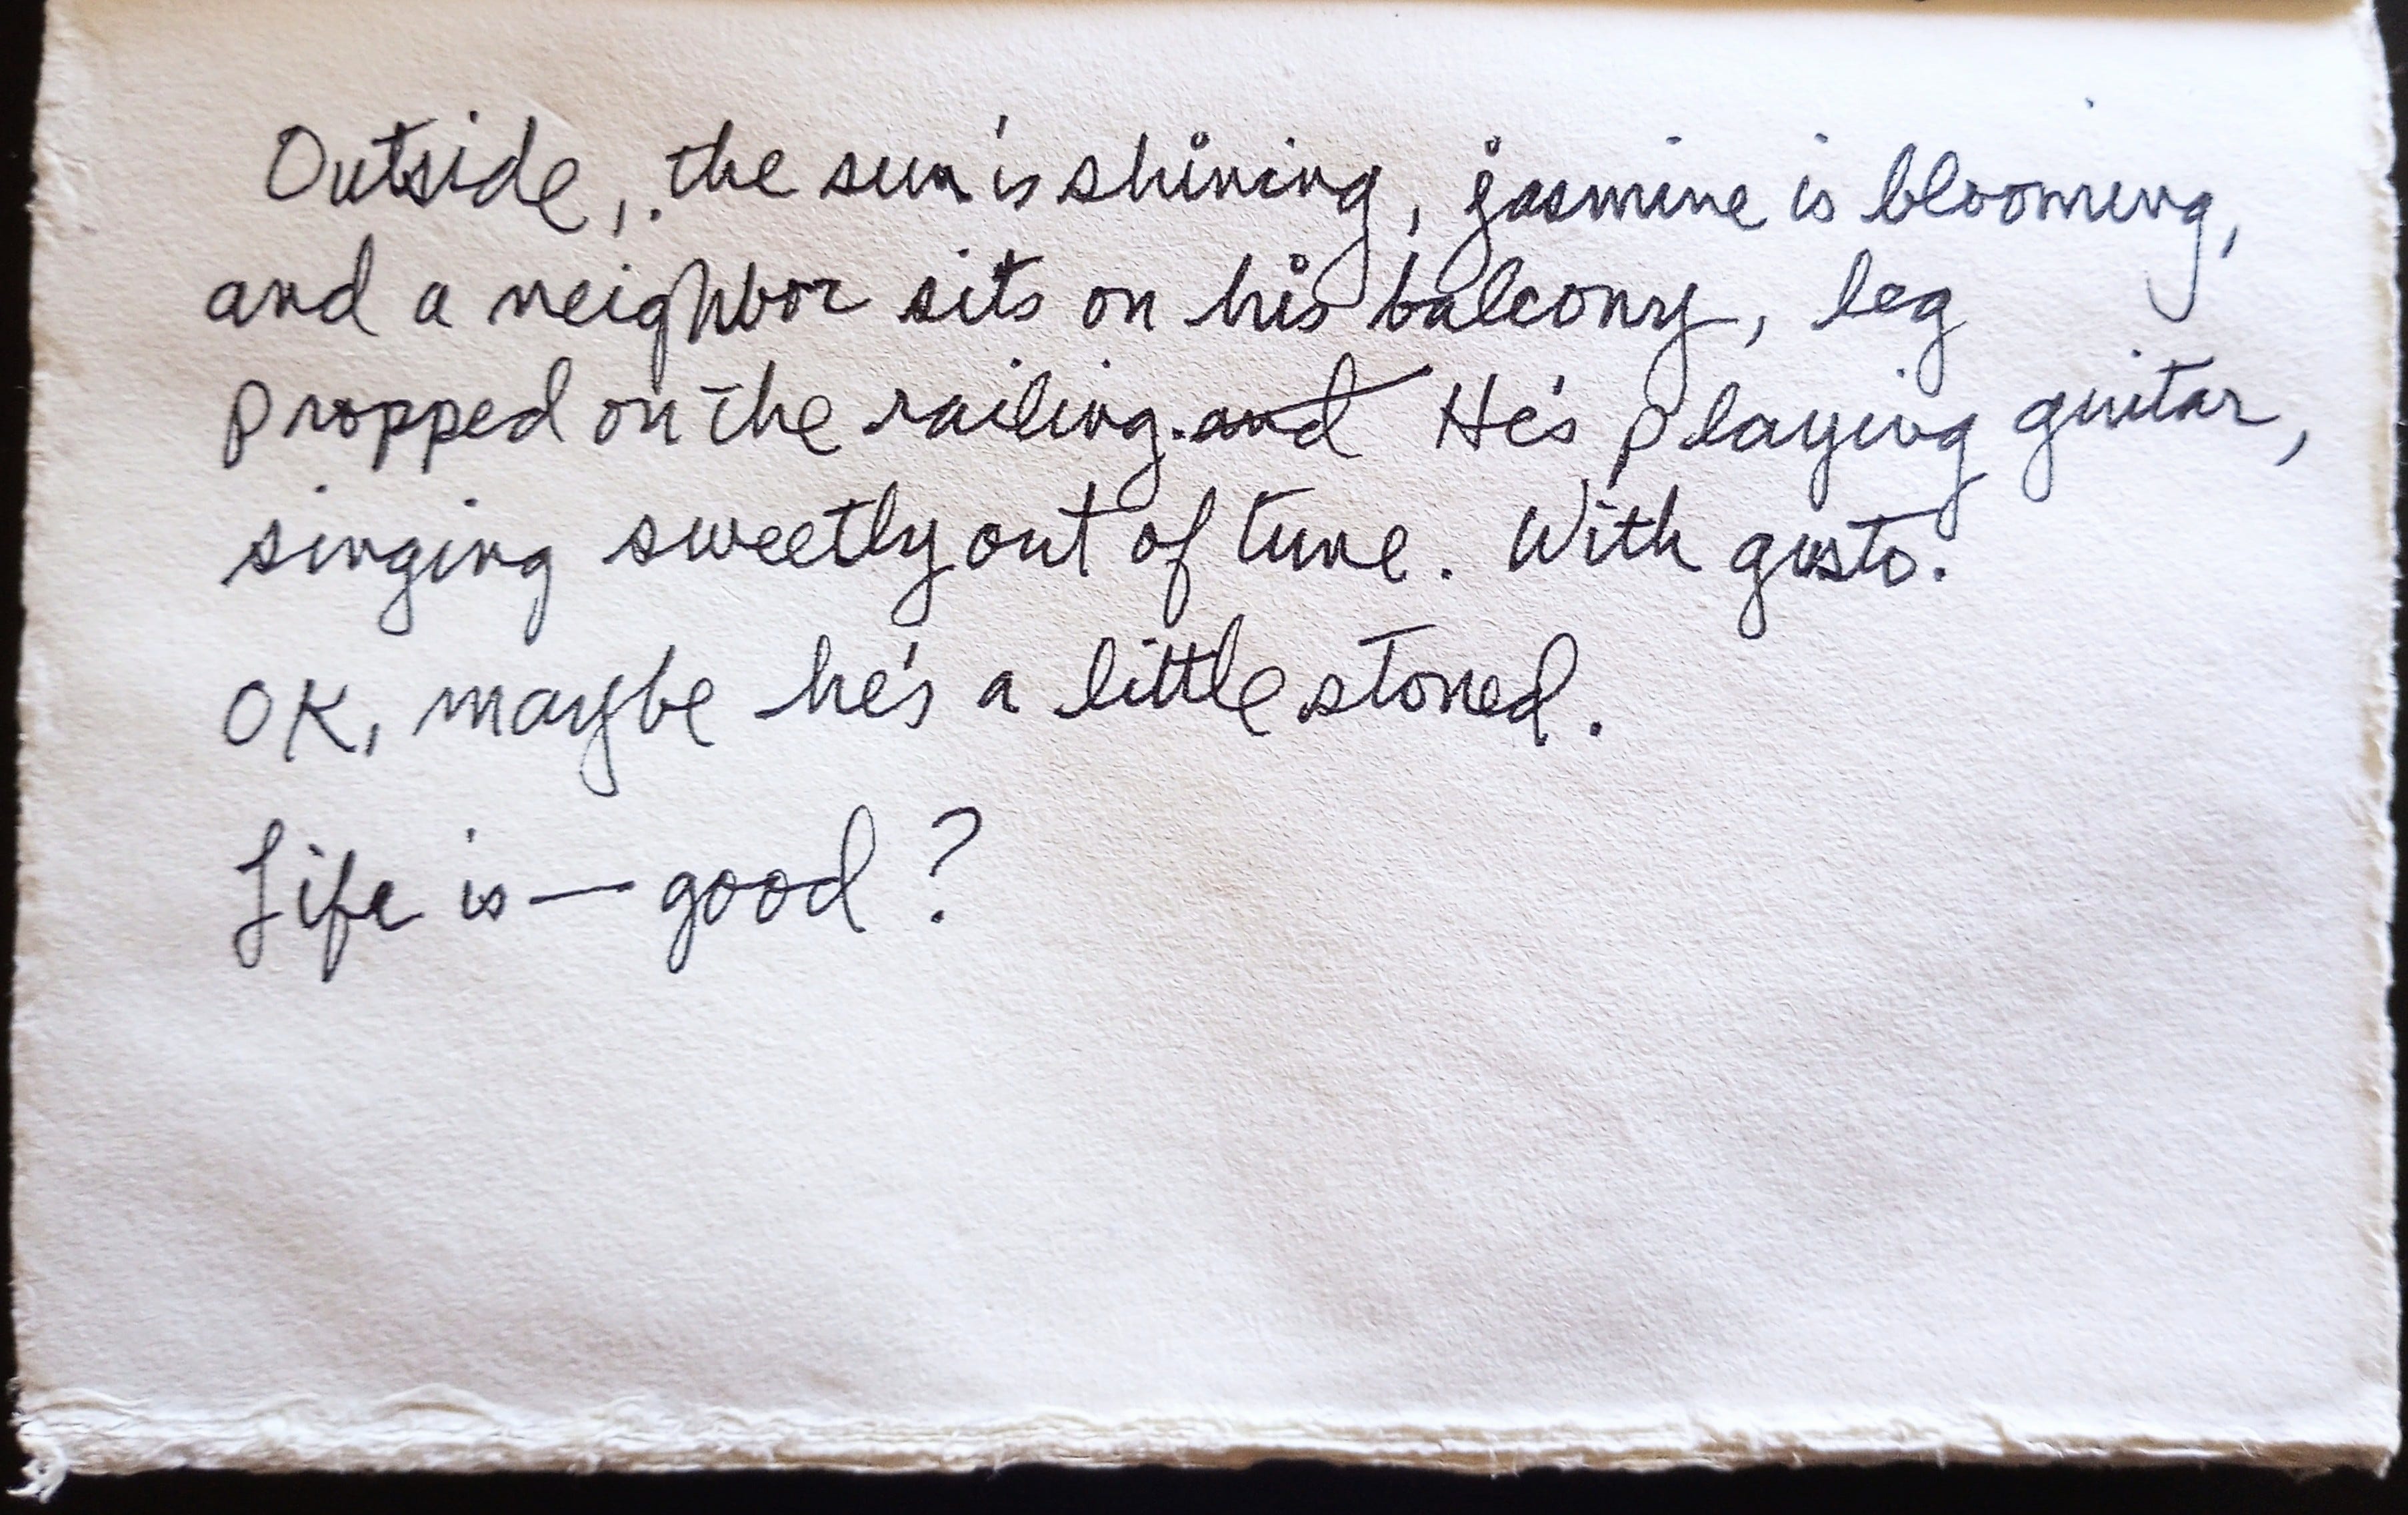 Outside, the sun is shining, jasmine is blooming,
and a neighbor sits on his balcony, leg
propped on the railing. and He's playing guitar,
singing sweetly out of tune. With gusto.
OK, maybe he's a little stoned.
Life is — good?